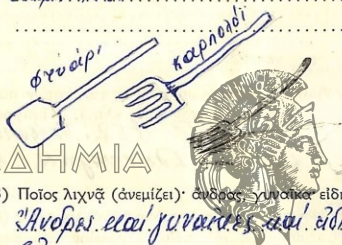 φτυάρι
καρπολόϊ
ΔΗΜΙΑ
) Ποῖος λιχνᾷ (ἀνεμίζει)· ἄνδρας, γυναῖκα εἰδι
Ἄνδρες καί γυναῖκες καί εἰδι